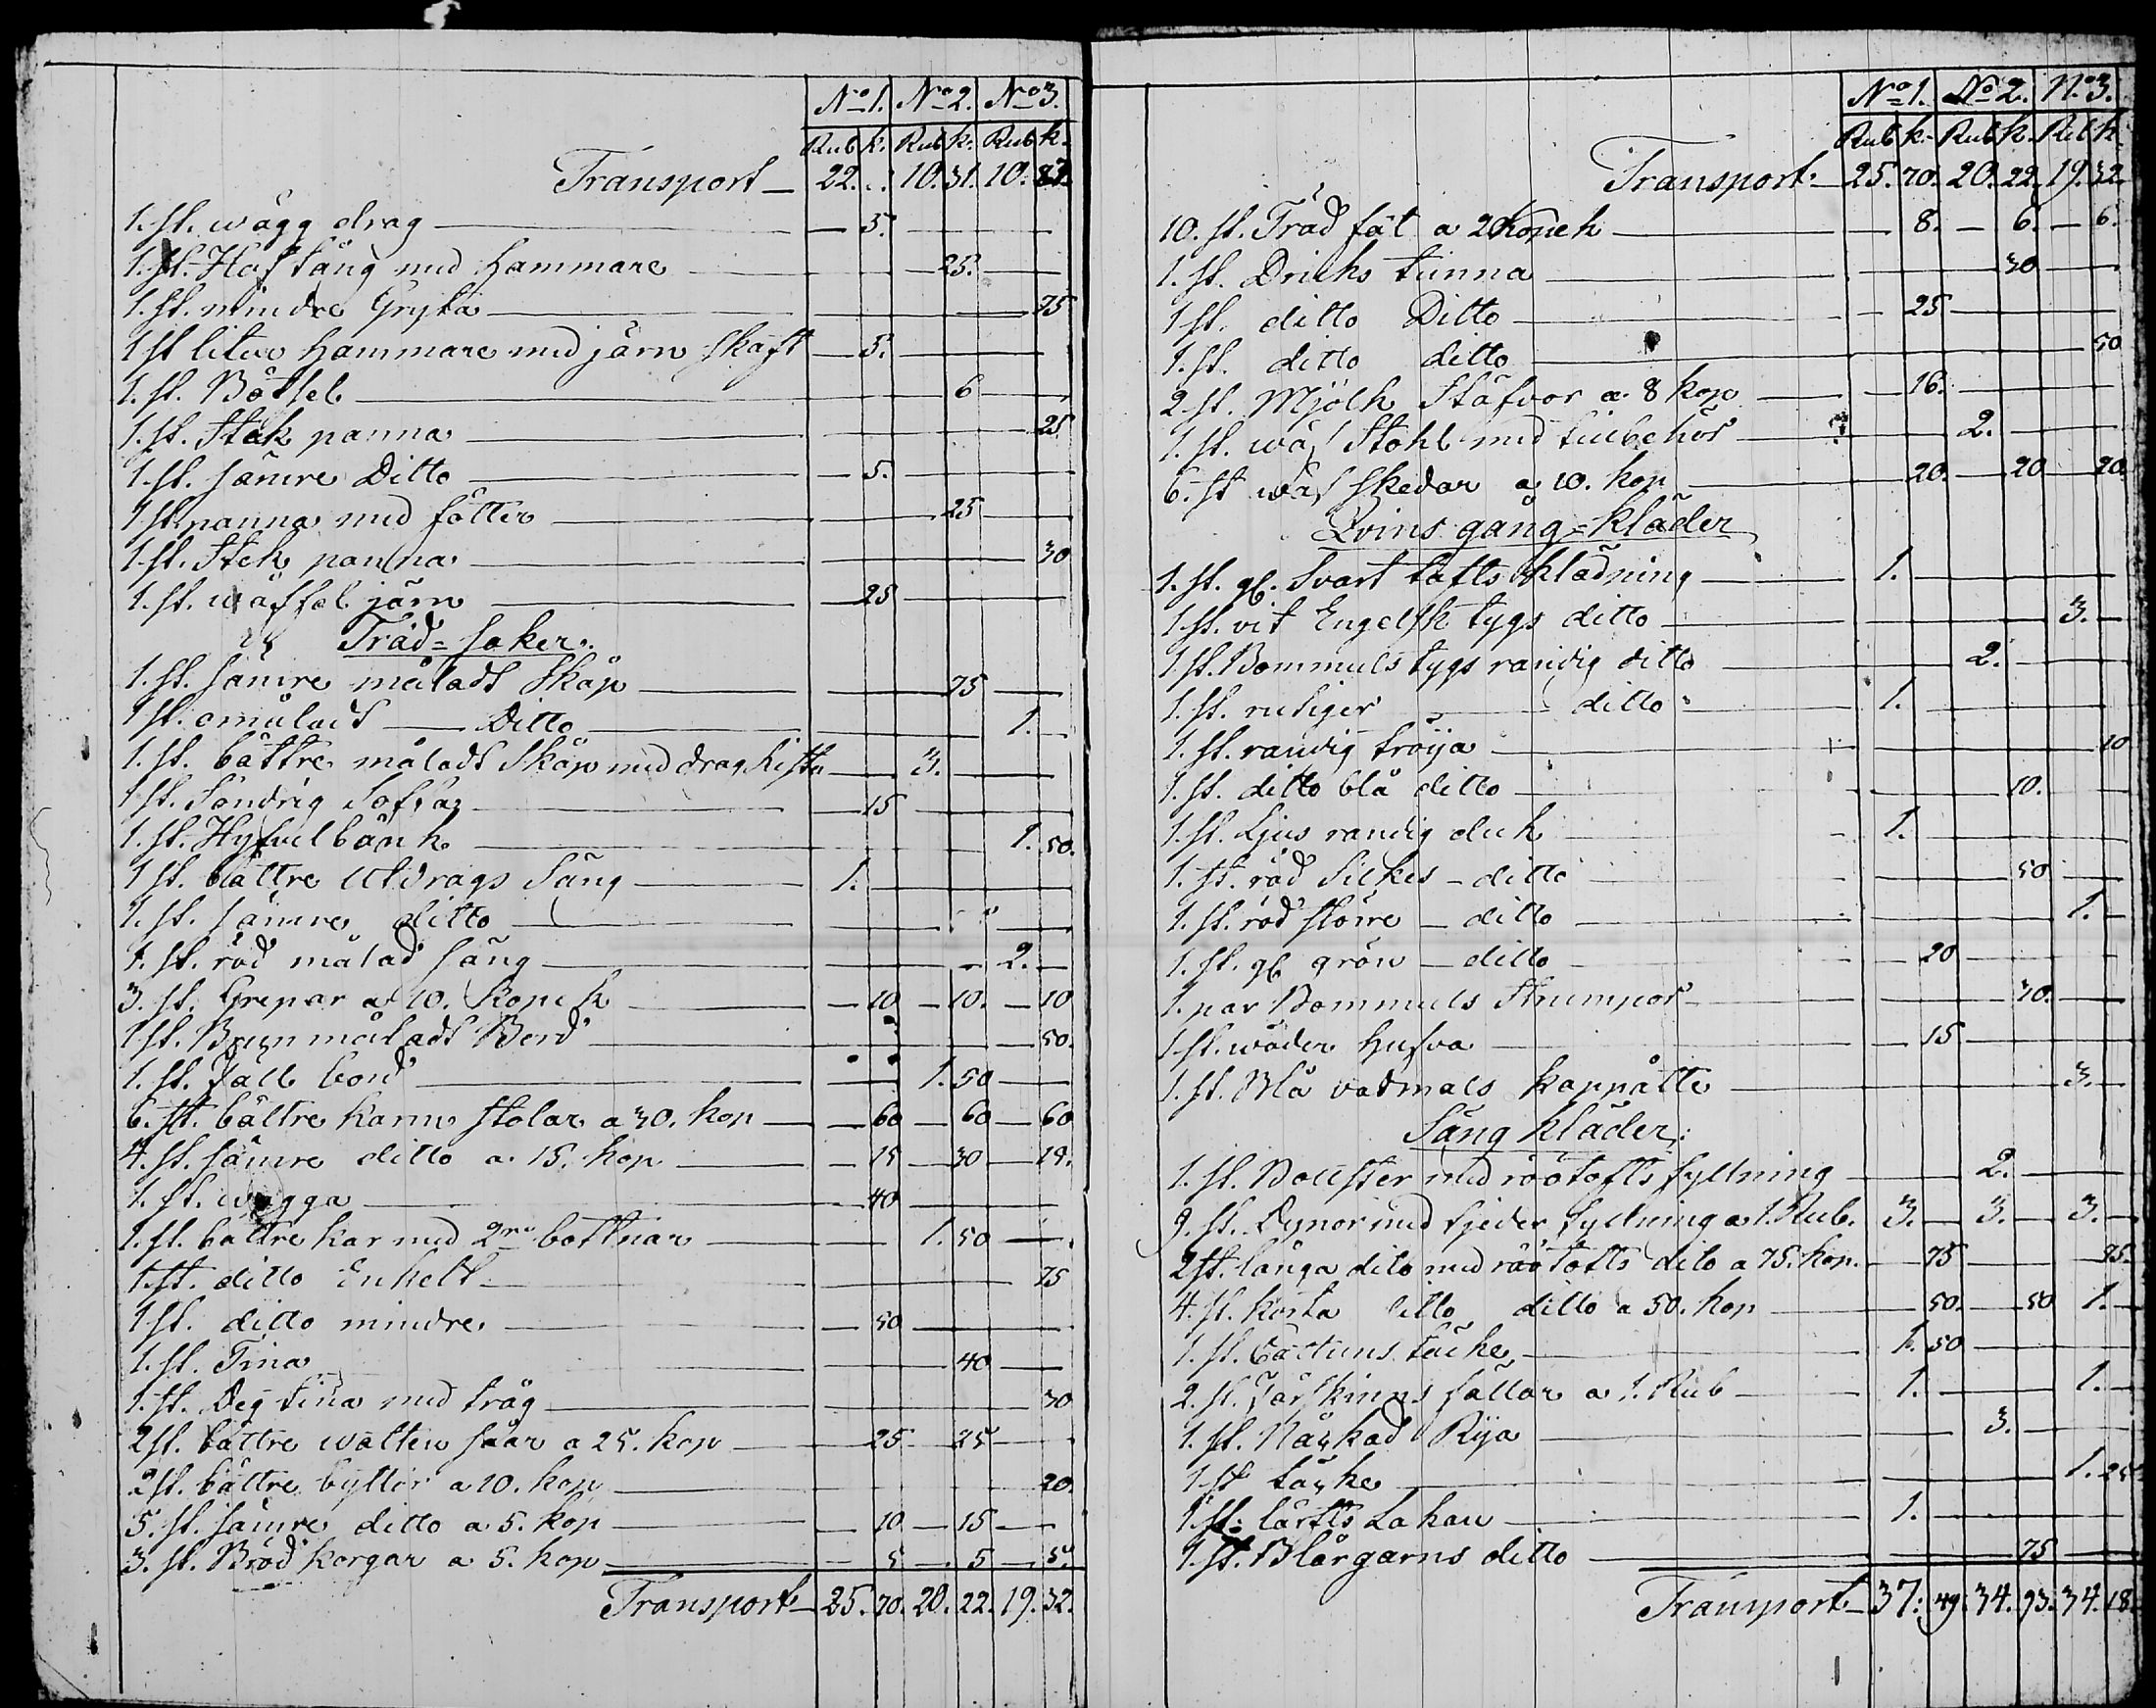 No 1. No 2. No 3.
Rub k. Rub k. Rub k.
Transport 22. .. 10. 31. 10. 87.
1. st. wägg drag 5.
1. st. Hof tång med hammare 25.
1. st. mindre Gryta 75
1 st liten hammare med järn skaft 5.
1. st. Bötsel 6
1. st. Stek panna 25
1. st. sämre Ditto 5.
1 st. panna med fötter 25
1. st. Stek panna 30
1. st. wåffel järn 25
Träd-saker.
1. st. sämre måladt Skåp 75
1 st. omåladt Ditto 1.
1. st. bättre måladt Skåp med drag kista 3.
1 st. Söndrig Soffa 15
1. st. Hyfvelbänk 1. 50.
1 st. bättre utdrags Säng 1.
1. st. sämre ditto
1. st. röd målad säng 2.
3. st. Grepar a 10. Kopek 10 10. 10
1 st. Brun måladt Bord 50.
1. st. fäll bord 1. 50
6. st. bättre karm stolar a 30. kop 60 60 60
4. st. sämre ditto a 15. kop 15 30 15.
1. st. wagga 40
1. st. bättre kar med 2ne bottnar 1. 50
1. st. ditto Enkelt 75
1 st. ditto mindre 50
1. st. Tina 40
1. st. Deg tina med tråg 30
2 st. bättre watten såar a 25. kop 25 25
2 st. bättre byttor a 10. kop 20.
5. st. sämre ditto a 5. kop 10 15
3. st. Bröd korgar a 5. kop 5 5 5.
Transport 25. 70. 20. 22. 19. 32.
No 1. No 2. No 3.
Rub k. Rub k. Rub k.
Transport 25. 70. 20. 22. 19. 32.
10. st. Träd fat a 2 Kopek 8. 6. 6.
1. st. Dricks tunna 30
1 st. ditto Ditto 25
1. st. ditto ditto 50
2 st. Mjölk Stäfvor a 8 kop 16.
1. st. wäf Stohl med tilbehör 2.
6. st wäf skedar a 10. kop 20. 20 20.
Qvins gång-kläder
1. st. gl. Svart tafts klädning 1.
1 st. vit Engelsk tygs ditto 3.
1 st. Bommuls tygs randig ditto 2.
1. st. rutiger ditto 1.
1. st. randig tröija 10
1. st. ditto blå ditto 10.
1. st. Ljus randig duk 1.
1. st. röd Silkes ditto 50
1. st. röd större ditto 1.
1. st. gl grön ditto 20
1. par Bommuls Strumpor 30.
1 st. wäder Hufva 15
1. st. Blå vadmals kappåtte 3.
Säng kläder:
1. st. Bolster med rötofts fyllning 2.
9. st. Dynor med fjeder fyllning a 1. Rub. 3. 3. 3.
2 st. långa dito med rötofts dito a 75. kop. 75 75.
4. st. korta ditto ditto a 50. kop 50. 50 1.
1. st. Cattuns täcke 1. 50
2. st. Fårskinns fällar a 1. Rub 1. 1.
1. st. Näckad Rya 3.
1 st täcke 1. 25
1. st. lärfts Lakan 1.
1. st. Blårgarns ditto 75
Transport 37. 49. 34. 93. 34. 18.